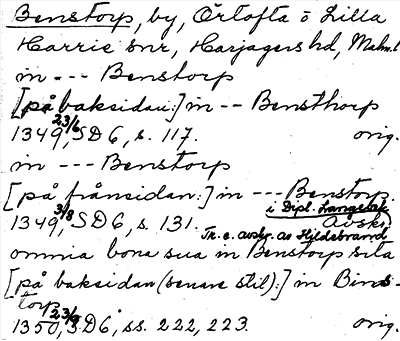 Benstorp, by, Örtofta o Lilla
Harrie snr, Harjagers hd, Malm.l
in --- Benstorp
[på baksidan:] in -- Bensthorp
1349 23/6, SD 6, s. 117. orig.
in --- Benstorp
[på frånsidan:] in --- Benstorp.
i Dipl. Langebek
1349 3/8, SD 6, s. 131. Avskr.
Tr. e. avskr. av Hildebrand
omnia bona sua in Benstorp sita
[på baksidan (senare stil):] in Bins-
torp
1350 23/9, SD 6, ss. 222, 223. orig.